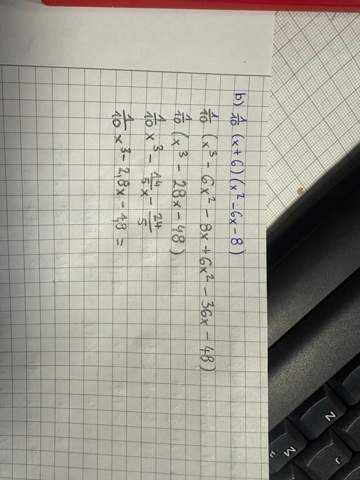 b) 1/10 (x+6)(x²-6x-8)
1/10 (x³-6x²-8x+6x²-36x-48)
1/10 (x³-28x-48)
1/10 x³ - 14/5x - 24/5
1/10 x³-2,8x-1,8=
N
M